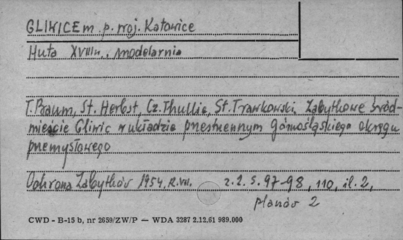 GLIWICE m. p. woj. Katowice
Huta XVIII w., modelarnia
T. Praum, St. Herbst, Cz. Thullie, St. Trawkowski, Zabytkowe śród-
mieście Gliwic w układzie przestrzennym górnośląskiego okręgu
przemysłowego
Ochrona Zabytków 1954, R. VII. z. 2. s. 97-98, 110, il. 2,
planów 2
CWD - B-15 b, nr 2659/ZW/P — WDA 3287 2.12.61 989.000